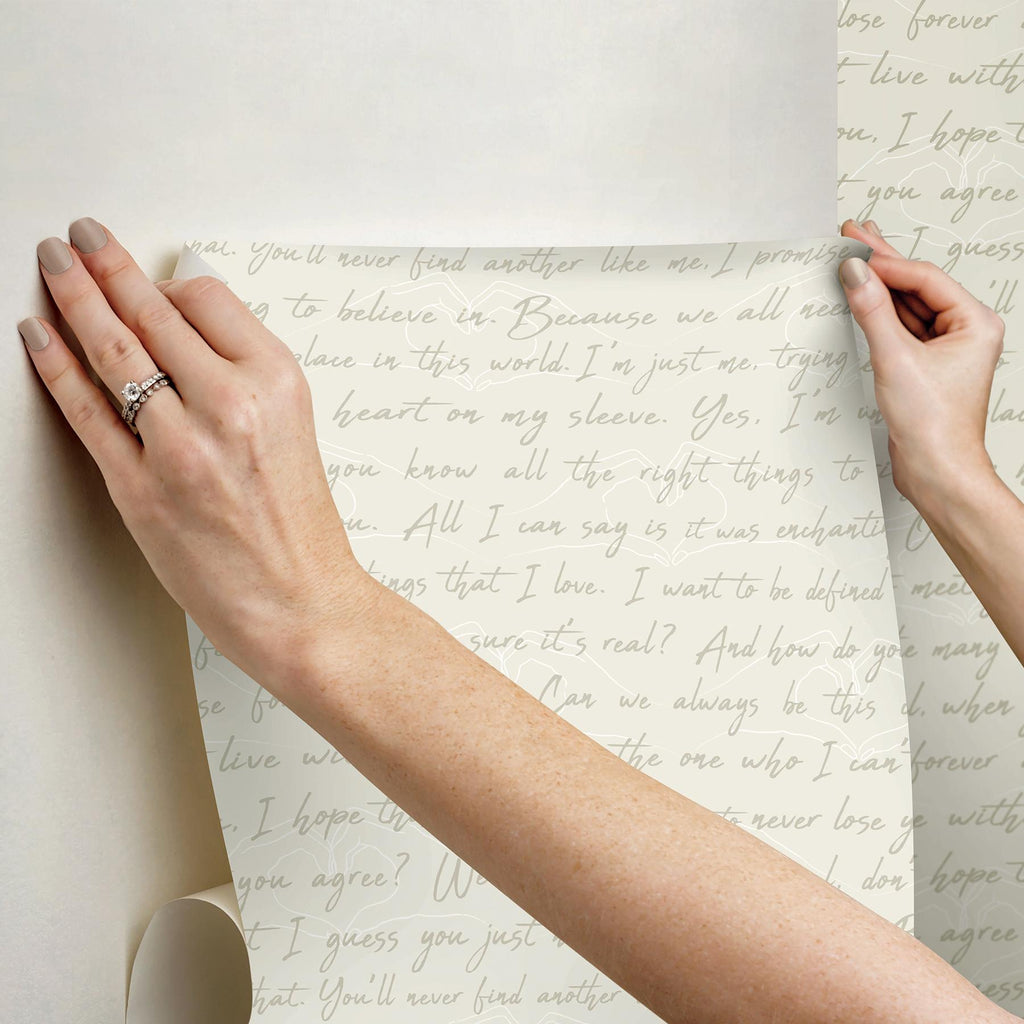 lose forever
live with
I hope
you agree
I guess
that. You'll never find another like me, I promise
to believe in. Because we all need
place in this world. I'm just me, trying
heart on my sleeve. Yes, I'm
you know all the right things to
All I can say is it was enchanting
things that I love. I want to be defined meet
sure it's real? And how do you many
Can we always be this when
live the one who I can't forever
I hope to never lose with
you agree? don't hope
I guess you just agree
that. You'll never find another guess